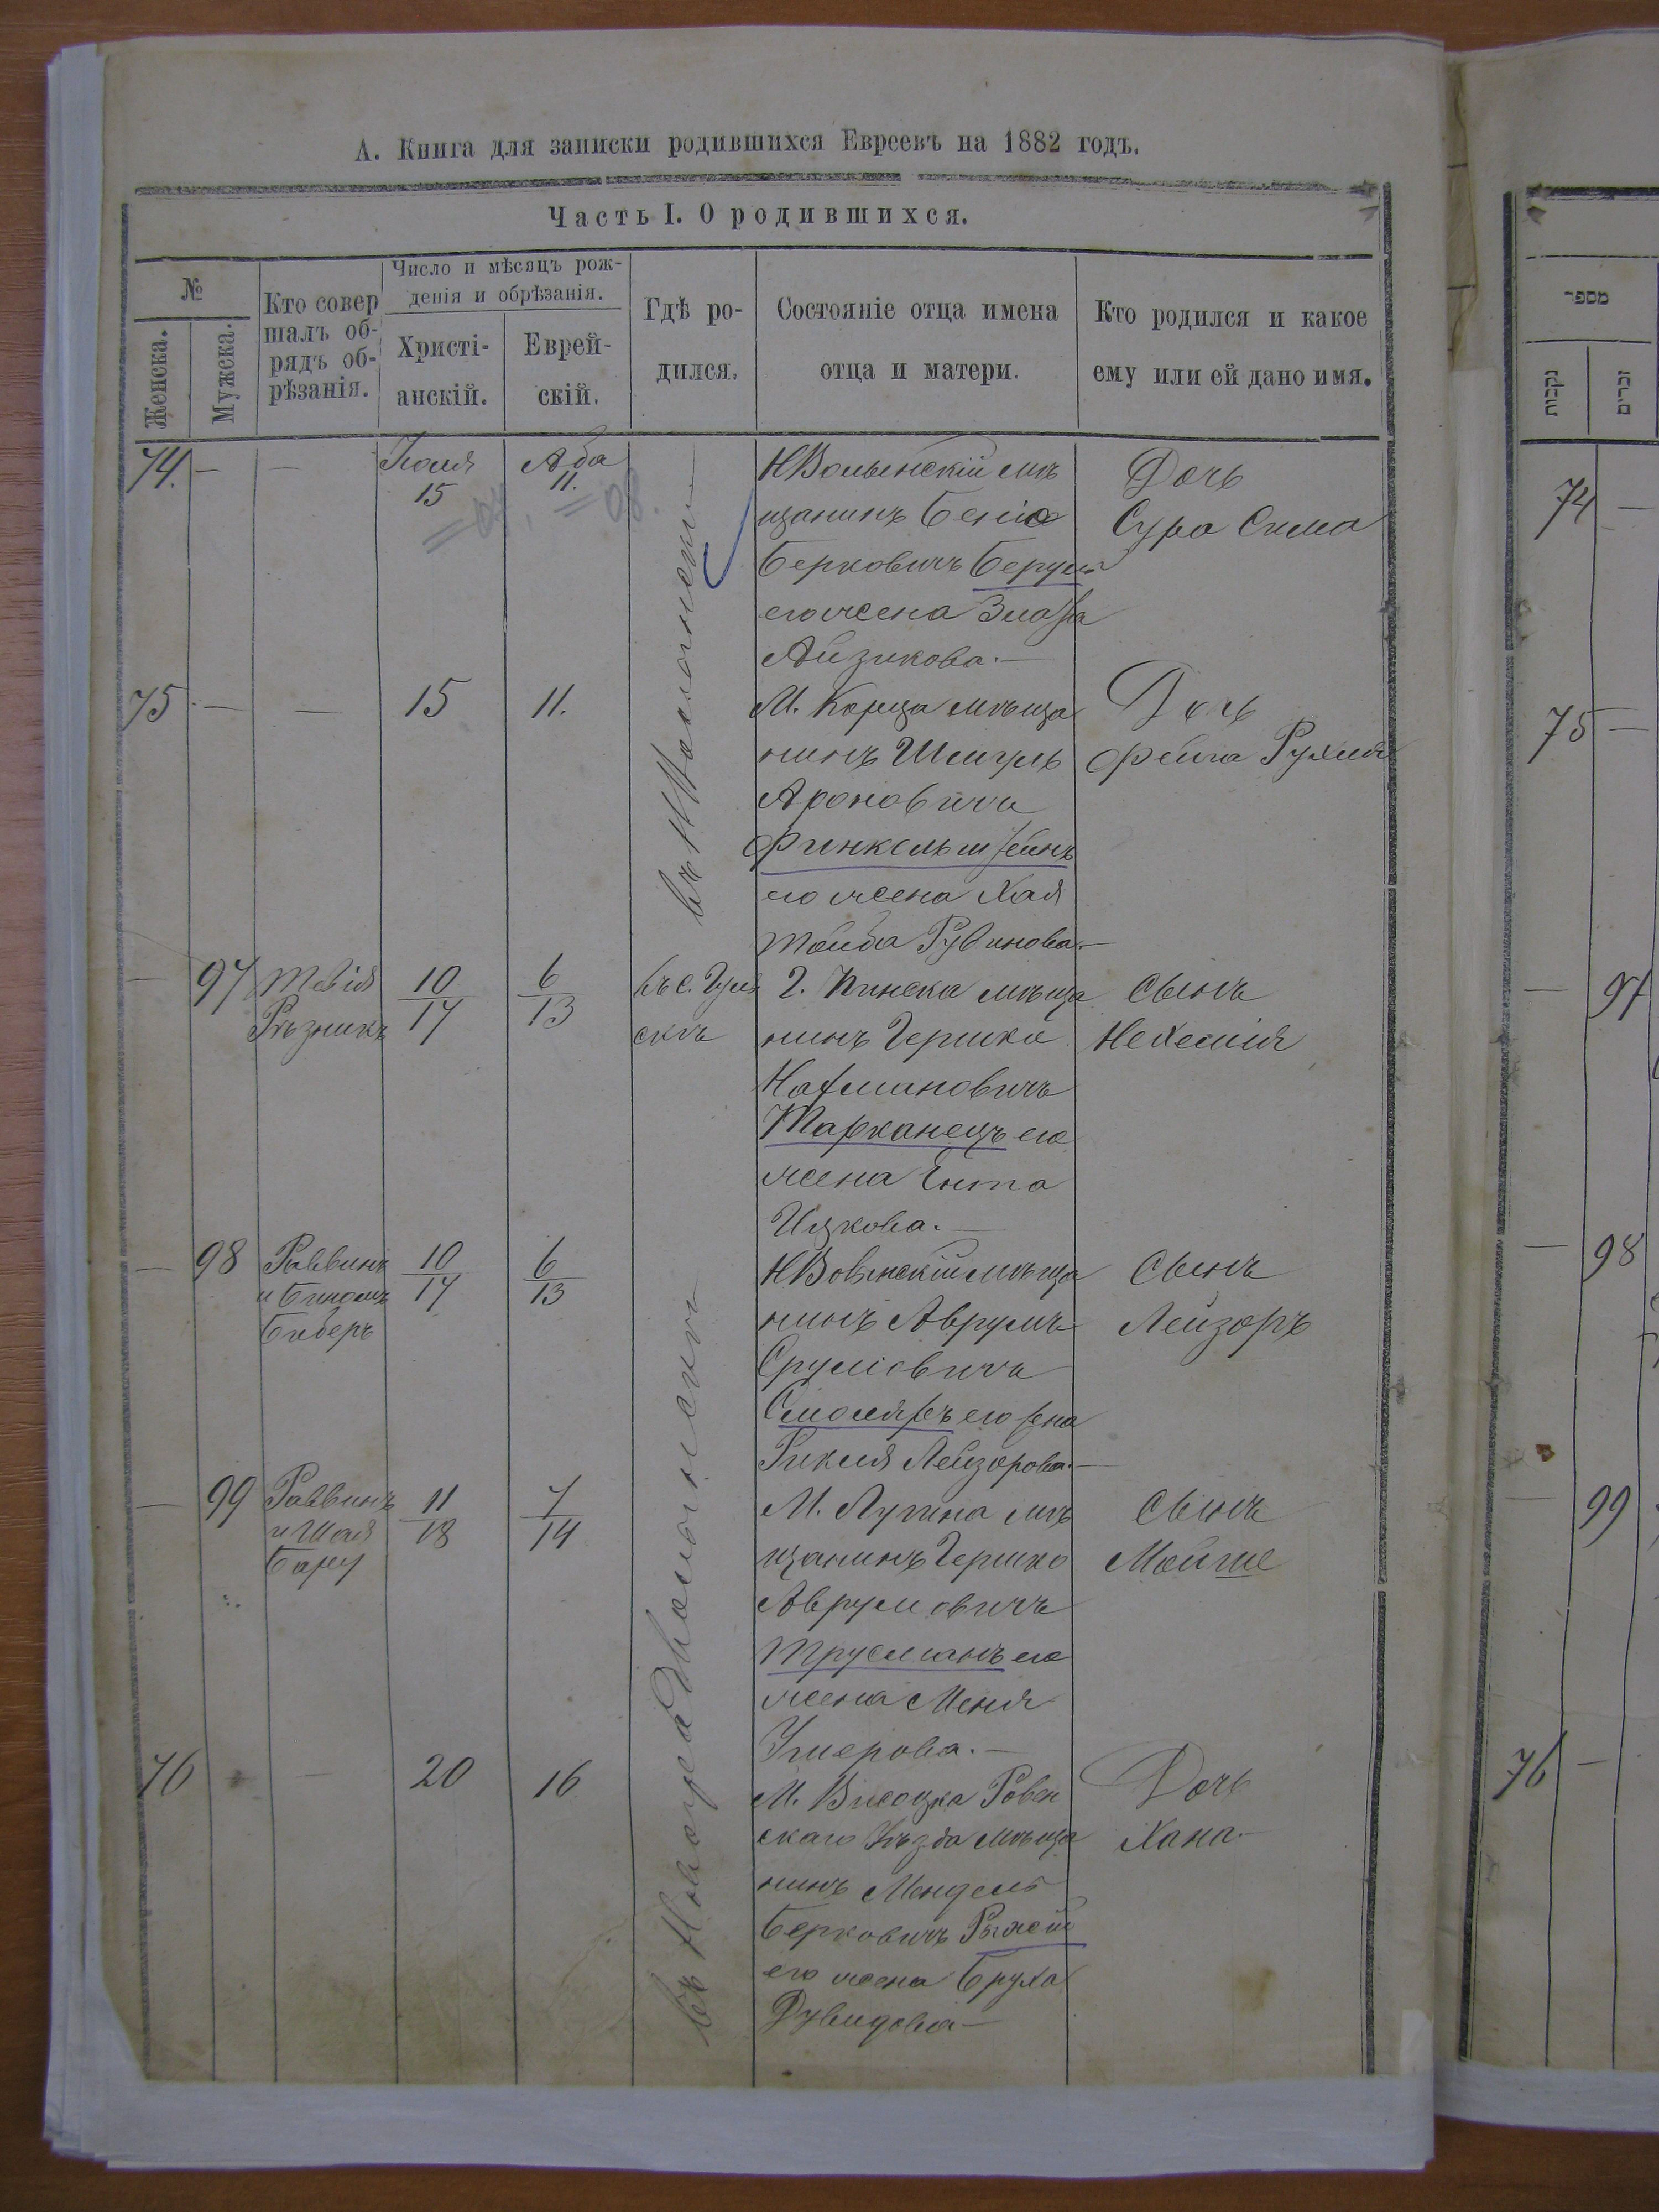 А. Книга для записки родившихся Евреевъ на 1882 годъ.
Часть I. О родившихся.
№
Женска.
Мужеска.
Кто совер
шалъ об-
рядъ об-
рѣзанія.
Число и мѣсяцъ рож-
денія и обрѣзанія.
Христі-
анскій.
Еврей-
скій.
Гдѣ ро-
дился.
Состояніе отца имена
отца и матери.
Кто родился и какое
ему или ей дано имя.
74. — —
Іюля
15
Ава
11.
НВолынскій мѣ
щанинъ Беніо
Берковичъ
его жена Злата
Айзикова. —
Дочь
Сура Сима
75 — — 15 11.
М. Корца мѣща
нинъ Шмуль
Ароновичъ
Финкельштейнъ
его жена Хая
Тойба Рувинова. —
Дочь
Фейга Рухля
— 97
Тевія
Рѣзникъ
10
17
6
13
нинъ Гершко
Нахмановичъ
его
жена Ента
Ицкова. —
Г. Пинска мѣща
Сынъ
Нехемія
— 98
Раввинъ
и
Биберъ
10
17
6
13
НВолынскій мѣща
нинъ Аврумъ
Сруліовичъ
Смоляръ его жена
Рикля Лейзорова. —
Сынъ
Лейзоръ
— 99
Раввинъ
и Шая
11
18
7
14
М. Лугина мѣ
щанинъ Гершко
Аврумовичъ
Трусманъ его
жена Меня
Сынъ
Мойше
76 — 20 16
въ Новоградволынскѣ
М. Висоцка Ровен
скаго уѣзда мѣща
нинъ Мендель
Берковичъ Рыжій
его жена Бруха
Дувидова —
Дочь
Хана. —
מספר
נקבות
זכרים
74 —
75 —
— 97
— 98
— 99
76 —